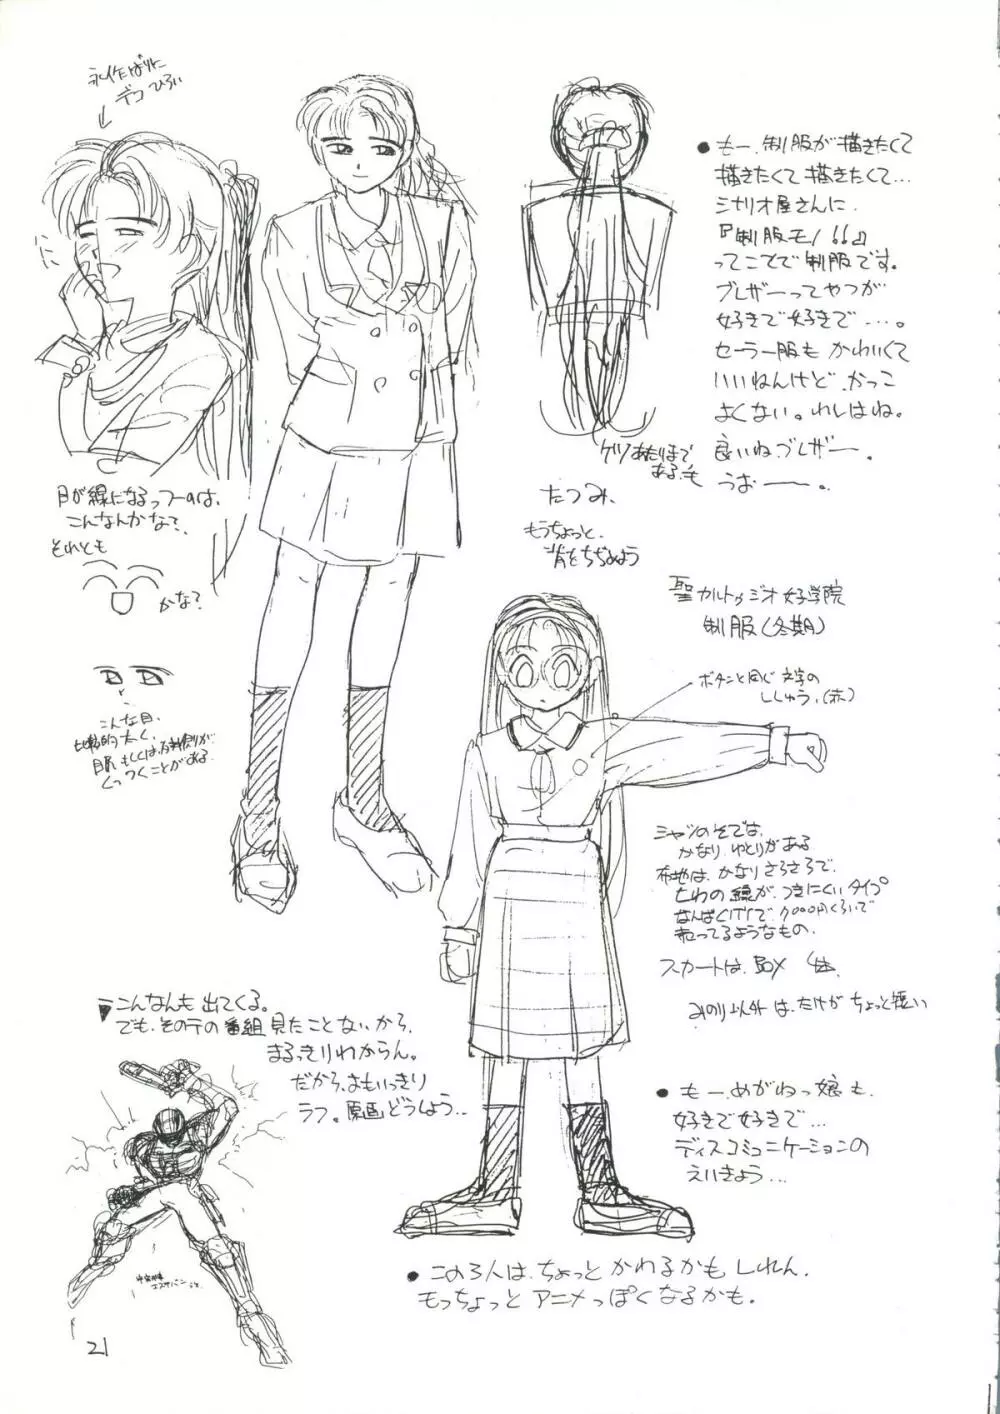 デコ ひろい
● もー、制服が描きたくて
描きたくて描きたくて…
シナリオ屋さんに、
『制服モノ!!』
ってことで制服です。
ブレザーってやつが
好きで好きで…。
セーラー服も かわいくて
いいねんけど、かっこ
よくない。わしはね。
良いね、ブレザー。
うおーー。
ケツあたりまで
ある。も
たつみ、
もうちょっと、
背をちぢめよう
目が線になるっつーのは、
こんなんかな?、
それとも
かな?
こんな目、
比較的太く、
くっつくことがある。
制服(冬期)
ボタンと同じ文字の
ししゅう。(赤)
シャツのそでは、
かなり、ゆとりがある
布地は、かなりさらさらで、
しわの線が、つきにくいタイプ
売ってるようなもの。
スカートは、BOX
みのり以外は、たけが ちょっと短い
▼こんなんも出てくる。
でも、その手の番組見たことないから、
まるっきりわからん。
だから、おもいっきり
ラフ。原画どうしよう…
● もー、めがねっ娘も、
好きで好きで…
ディスコミュニケーションの
えいきょう…
● この3人は、ちょっと かわるかもしれん。
もっちょっと アニメっぽくなるかも。
21